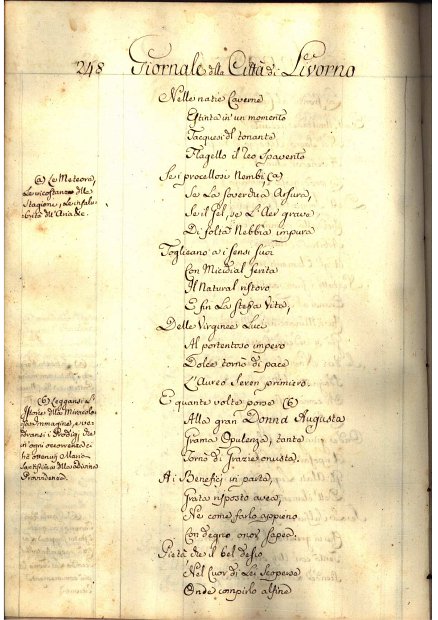 248 Giornale della Città di Livorno
Nelle natie Caverne
Estinta in un momento
Tacquesi del tonante
Flagello il reo Spavento
Se i procellosi Nembi, (a)
Se La soverchia Arsura,
Se il Gel, se L'Aer grave
Di folta Nebbia impura
Toglieano a i sensi suoi
Con Micidial ferita
Il Natural ristoro
E fin La stessa Vita,
Delle Virginee Luci
Al portentoso impero
Dolce tornò di pace
L'Aureo Seren primiero.
E quante volte porse (b)
Alla gran Donna Augusta
Grama Opulenza, tante
Tornò di Grazie onusta.
A i Benefizj in parte,
Grata risposto avea,
Ne come farlo appieno
Con degno onor sapea.
Pietà che il bel desio
Nel Cuor di Lei scoperse
Onde compirlo alfine
(a) Le Meteore,
Le circostanze delle
Stagioni, Le insalu-
brità dell'Aria &c.
(b) Leggansi L'
Istorie della Miracolo-
sa Immagine, e ve-
dransi i Prodigj che
in ogni occorrenza ci
ha ottenuti Maria
Santissima dalla divina
Provvidenza.